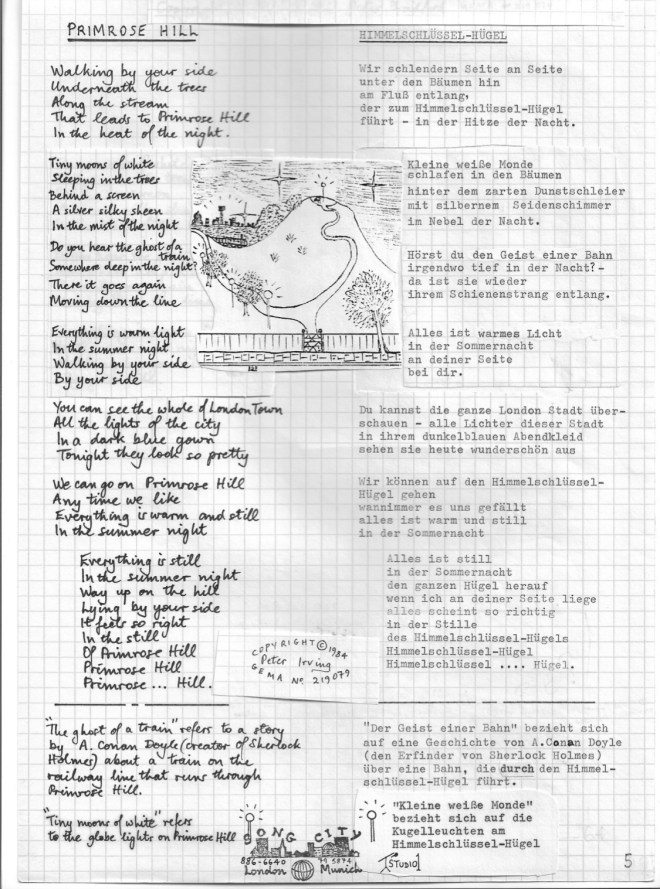 PRIMROSE HILL
Walking by your side
Underneath the trees
Along the stream
That leads to Primrose Hill
In the heat of the night.
Tiny moons of white
Sleeping in the trees
Behind a screen
A silver silky sheen
In the mist of the night
Do you hear the ghost of a
train
Somewhere deep in the night?
There it goes again
Moving down the line
Everything is warm light
In the summer night
Walking by your side
By your side
You can see the whole of London Town
All the lights of the city
In a dark blue gown
Tonight they look so pretty
We can go on Primrose Hill
Any time we like
Everything is warm and still
In the summer night
Everything is still
In the summer night
Way up on the hill
Lying by your side
It feels so right
In the still
Of Primrose Hill
Primrose Hill
Primrose ... Hill.
COPYRIGHT © 1984
Peter Irving
GEMA No. 219079
"The ghost of a train" refers to a story
by A. Conan Doyle (creator of Sherlock
Holmes) about a train on the
railway line that runs through
Primrose Hill.
"Tiny moons of white" refers
to the globe lights on Primrose Hill
HIMMELSCHLÜSSEL-HÜGEL
Wir schlendern Seite an Seite
unter den Bäumen hin
am Fluß entlang,
der zum Himmelschlüssel-Hügel
führt - in der Hitze der Nacht.
Kleine weiße Monde
schlafen in den Bäumen
hinter dem zarten Dunstschleier
mit silbernem Seidenschimmer
im Nebel der Nacht.
Hörst du den Geist einer Bahn
irgendwo tief in der Nacht? -
da ist sie wieder
ihrem Schienenstrang entlang.
Alles ist warmes Licht
in der Sommernacht
an deiner Seite
bei dir.
Du kannst die ganze London Stadt über-
schauen - alle Lichter dieser Stadt
in ihrem dunkelblauen Abendkleid
sehen sie heute wunderschön aus
Wir können auf den Himmelschlüssel-
Hügel gehen
wannimmer es uns gefällt
alles ist warm und still
in der Sommernacht
Alles ist still
in der Sommernacht
den ganzen Hügel herauf
wenn ich an deiner Seite liege
alles scheint so richtig
in der Stille
des Himmelschlüssel-Hügels
Himmelschlüssel-Hügel
Himmelschlüssel .... Hügel.
"Der Geist einer Bahn" bezieht sich
auf eine Geschichte von A.Conan Doyle
(den Erfinder von Sherlock Holmes)
über eine Bahn, die durch den Himmel-
schlüssel-Hügel führt.
"Kleine weiße Monde"
bezieht sich auf die
Kugelleuchten am
Himmelschlüssel-Hügel
SONG CITY
886-6640 M 5874
London Munich
STUDIO1
5